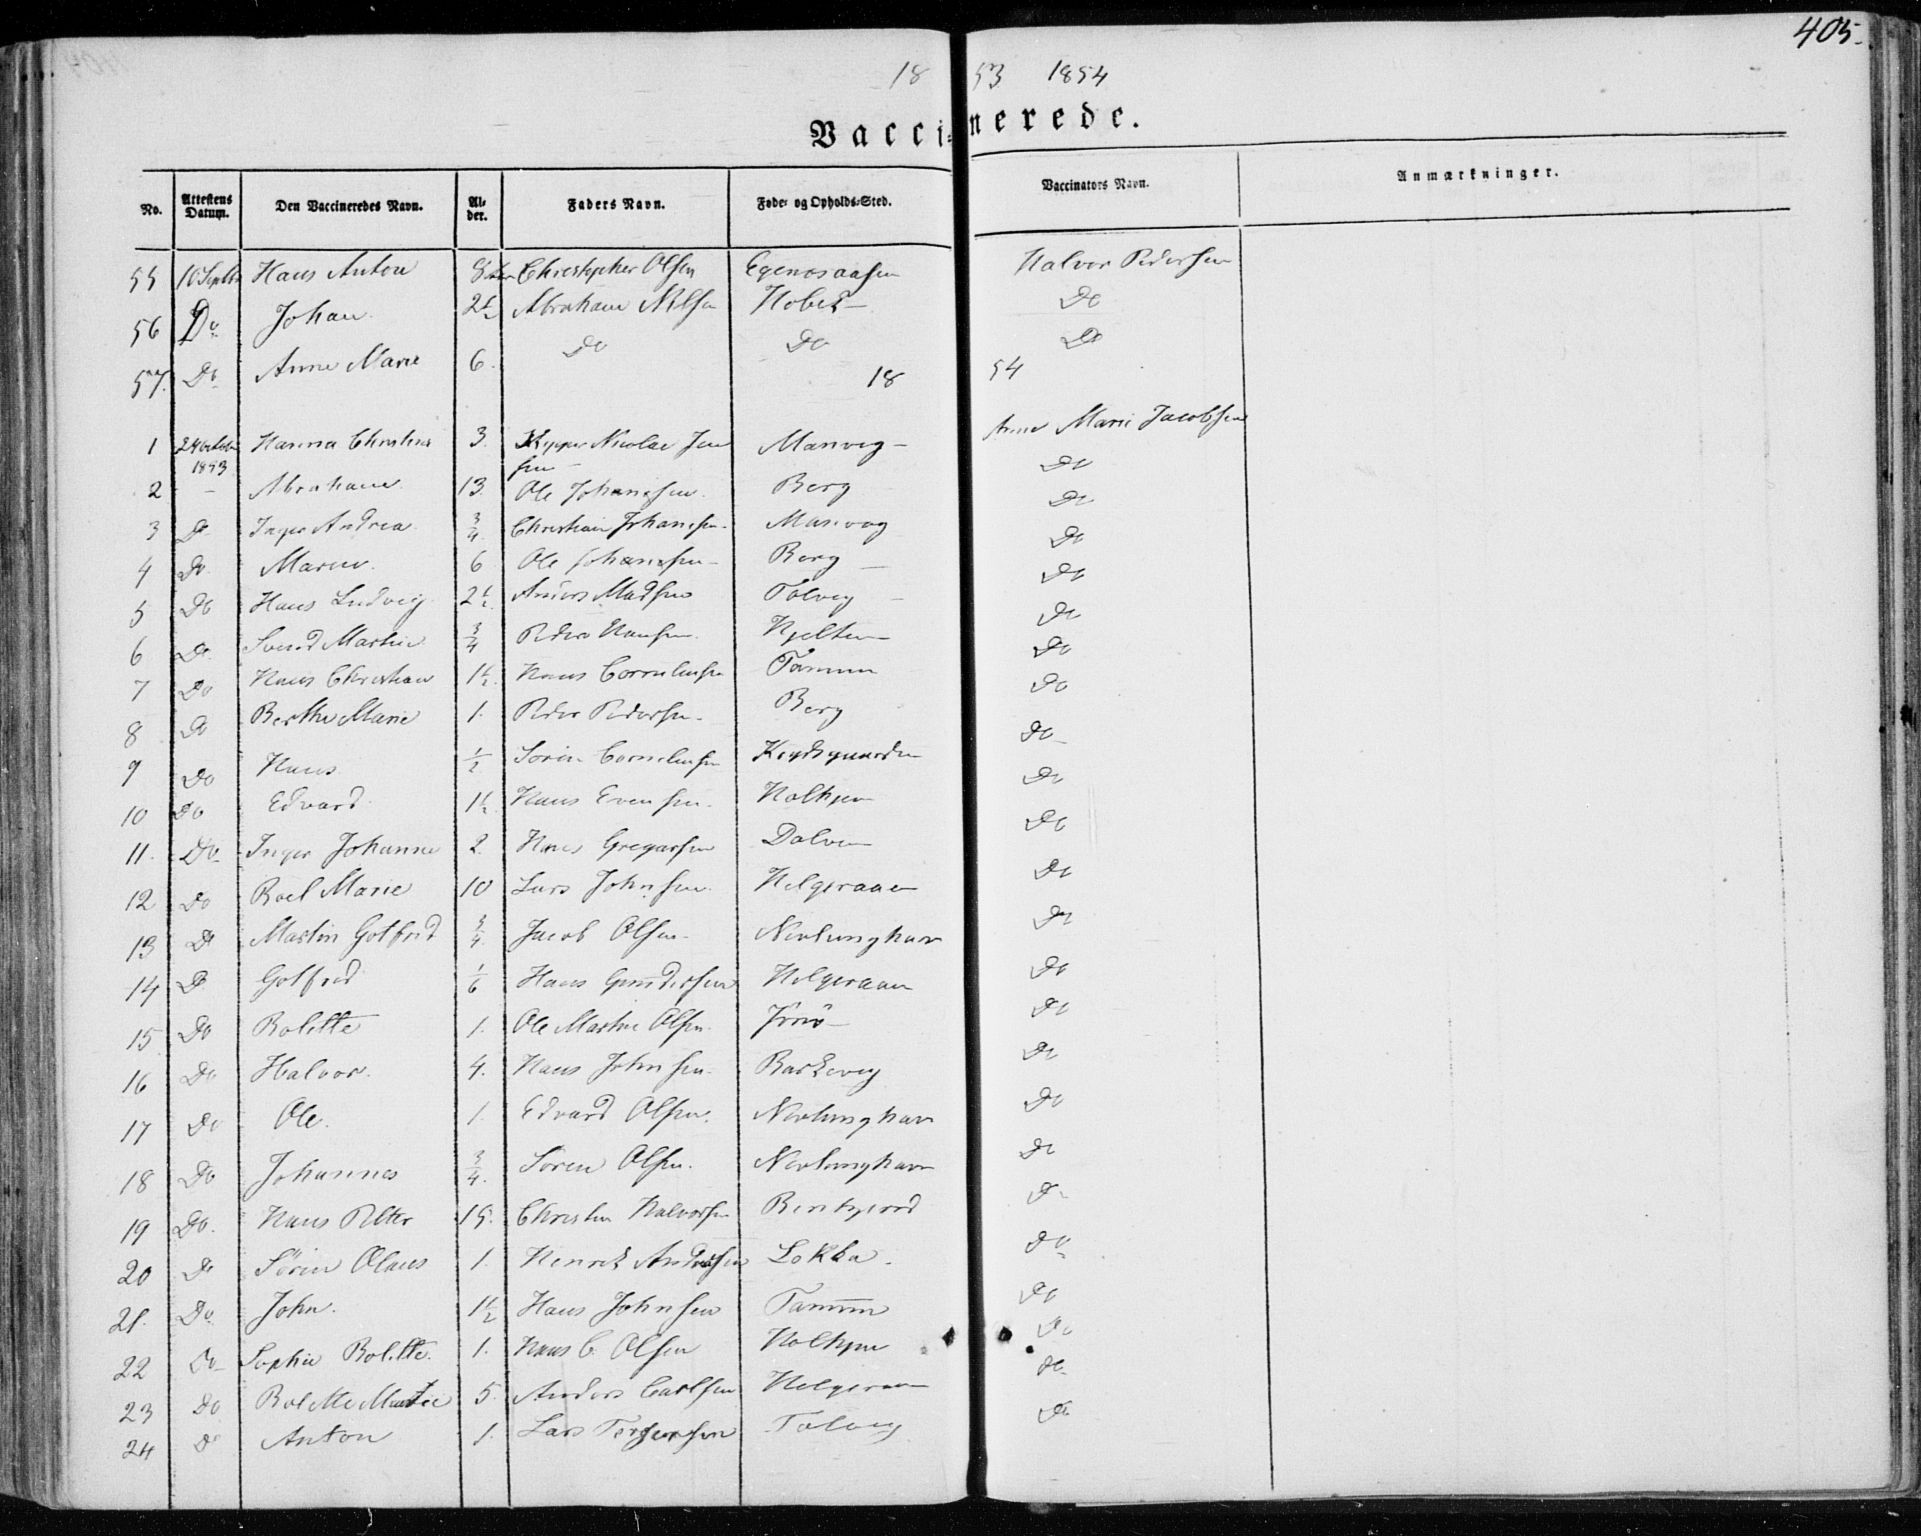 405.
1853 1854
Vaccinerede.
No. Attestens Datum. Den Vaccineredes Navn. Alder. Faders Navn. Føde- og Opholds-Sted. Vaccinators Navn. Anmærkninger.
55 10 Septbr Hans Anton Christopher Olsen Egenosaasen Halvor Pedersen
56 Do Johan. 2½ Abraham Nilsen Hobek Do
57. Do Anne Marie 6. Do Do Do
1854
1 24 octobr 1853 Hanna Christine 3. Nicolai Jensen Manvig Anne Marie Jacobsen
2 - Abraham 13. Ole Johansen. Berg Do
3 Do Inger Andrea ¾ Christian Johansen. Manvig Do
4 Do Maren. 6 Ole Johansen Berg Do
5 Do Hans Ludvig 2½ Anders Madsen Tolvig Do
6 Do Svend Martin ¾ Peder Hansen Hjelten Do
7 Do Hans Christian 1½ Hans Corneliusen Tammen Do
8 Do Berthe Marie 1. Peder Pedersen. Berg Do
9 Do Hans ½ Søren Corneliusen Do
10 Do Edvard 1½ Hans Evensen. Holhjem Do
11. Do Inger Johanne 2. Hans Gregersen Dolven Do
12 Do Boel Marie 10 Lars Johnsen. Helgeraaen Do
13 Do Martin Gotfred ¾ Jacob Olsen Nevlunghavn Do
14 Do Gotfred 1/6 Hans Gundersen Helgeraaen Do
15 Do Bolette 1. Ole Martin Olsen. Do
16 Do Halvor. 4. Hans Johnsen. Barkevig Do
17 Do Ole. 1. Edvard Olsen. Nevlunghavn Do
18 Do Johannes ¾. Søren Olsen. Nevlunghavn Do
19 Do. Hans Petter 15. Christen Halvorsen Do
20 Do Søren Olaus 1. Henrik Andersen Lokka. Do
21. Do John. 1½ Hans Johnsen Tammen Do
22 Do Sophie Bolette. 1. Hans C. Olsen Holhjem Do
23 Do Bolette Martie 5. Anders Carlsen Helgeraaen Do
24 Do Anton 1. Lars Torgersen Tolvig Do